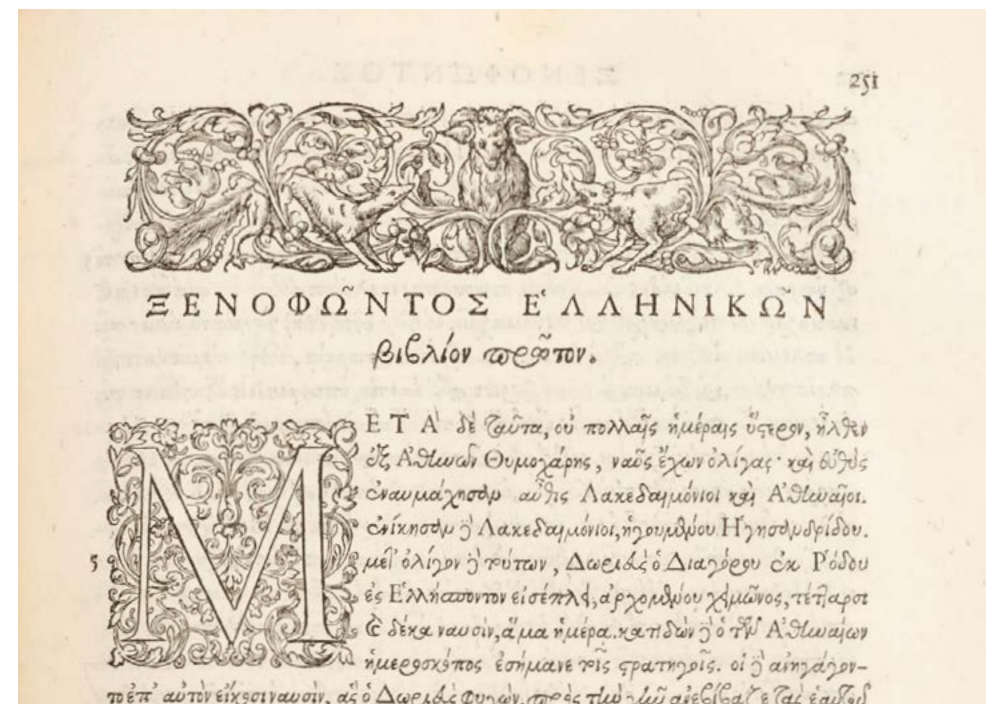 251
ΞΕΝΟΦΩ͂ΝΤΟΣ ἙΛΛΗΝΙΚΩΝ
βιβλίον πρῶτον.
ΜΕΤᾺ δὲ ταῦτα, οὐ πολλαῖς ἡμέραις ὕστερον, ἦλθεν
ἐξ Ἀθηνῶν Θυμοχάρης, ναῦς ἔχων ὀλίγας· καὶ εὐθὺς
ἐναυμάχησαν αὖθις Λακεδαιμόνιοι καὶ Ἀθηναῖοι.
ἐνίκησαν δὲ Λακεδαιμόνιοι, ἡγουμένου Ἡγησανδρίδου.
5 μετ' ὀλίγον δὲ τούτων, Δωριεὺς ὁ Διαγόρου ἐκ Ῥόδου
ἐς Ἑλλήσποντον εἰσέπλει, ἀρχομένου χειμῶνος, τέτταρσι
καὶ δέκα ναυσὶν, ἅμα ἡμέρᾳ. κατιδὼν δὲ ὁ τῶν Ἀθηναίων
ἡμεροσκόπος ἐσήμανε τοῖς στρατηγοῖς. οἱ δὲ ἀνηγάγον-
το ἐπ' αὐτὸν εἴκοσι ναυσὶν, ἃς ὁ Δωριεὺς φυγὼν, πρὸς τὴν γῆν ἀνεβίβαζε τὰς